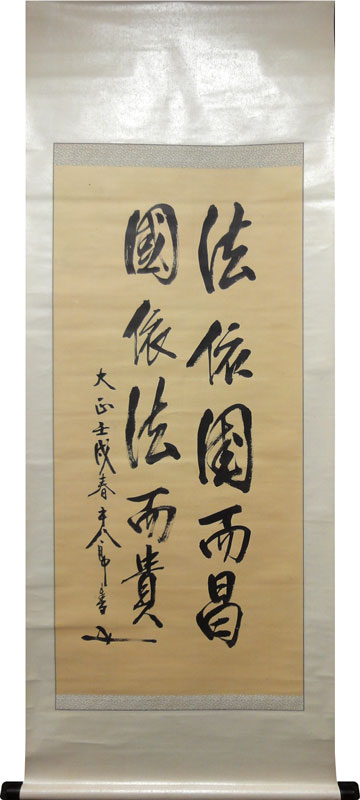 法依國而昌
國依法而貴
大正壬戌春